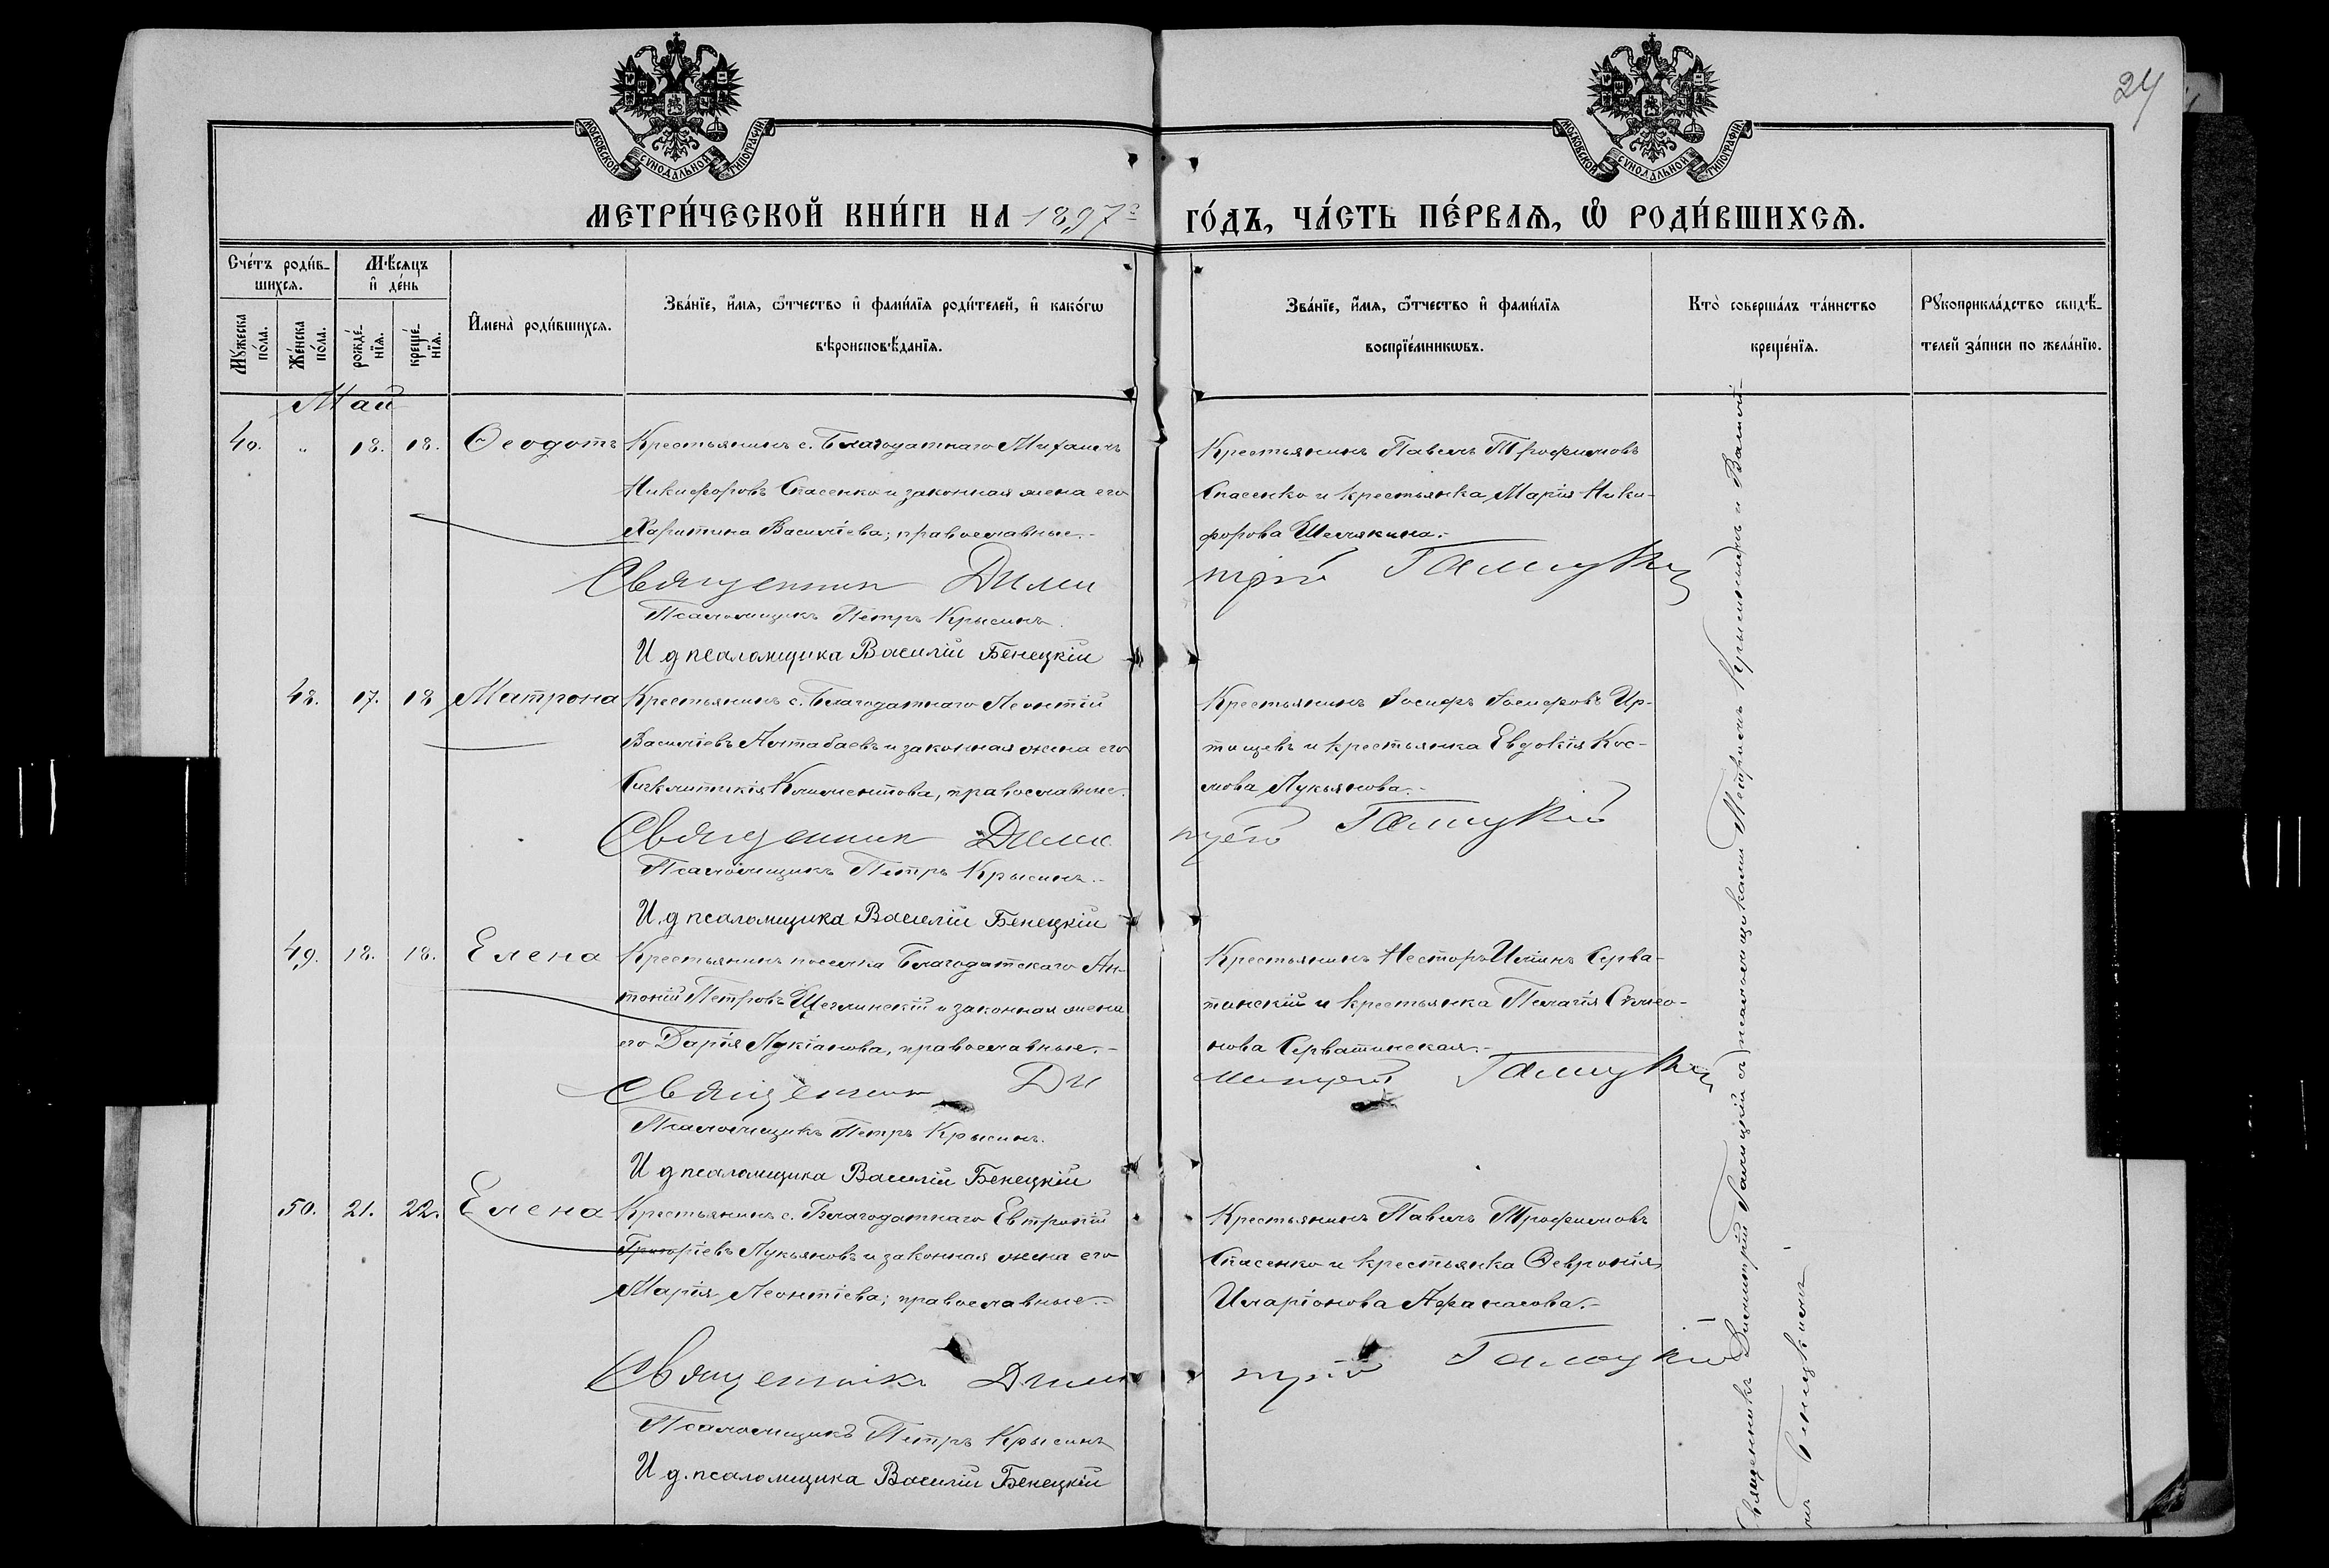 24
МОСКОВСКОЙ СУНОДАЛЬНОЙ ТИПОГРАФІИ
МОСКОВСКОЙ СУНОДАЛЬНОЙ ТИПОГРАФІИ
МЕТРИ́ЧЕСКОЙ КНИ́ГИ НА 1897 ГО́ДЪ, ЧА́СТЬ ПЕ́РВАѦ, Ѡ РОДИ́ВШИХСѦ.
Сче́тъ роди́в-
шихсѧ.
Мꙋ́жеска
по́ла.
Же́нска
по́ла.
Мѣ́сѧцъ
и҆ де́нь
рожде́-
нїѧ.
креще́-
нїѧ.
И҆мена̀ роди́вшихсѧ.
Зва́нїе, и҆́мѧ, ѻ҆́тчество и҆ фами́лїѧ роди́телей, и҆ како́гѡ
вѣроисповѣ́данїѧ.
Зва́нїе, и҆́мѧ, ѻ҆́тчество и҆ фами́лїѧ
воспрїе́мникѡвъ.
Кто̀ соверша́лъ та́инство
креще́нїѧ.
Рꙋкоприкла́дство свидѣ́-
телей за́писи по жела́нїю.
Май
40. " 18. 18. Ѳеодотъ
Крестьянинъ с. Благодатнаго Михаилъ
Никифоровъ Спасенко и законная жена его
Харитина Василіева; православные.-
Крестьянинъ Павелъ Трофимовъ
Спасенко и крестьянка Марія Ники-
форова Шелякина.-
Священник Димитрій Галицкій
Псаломщикъ Петръ Крысинъ.
И д псаломщика Василій Бенецкій
48. 17. 18 Матрона
Крестьянинъ с. Благодатнаго Леонтій
Василіевъ Алтабаевъ и законная жена его
Сигклитикія Климентова, православные.
Крестьянинъ Іосифъ Іосифовъ Ир-
тищевъ и крестьянка Евдокія Кос-
мова Лукьянова.-
Священник Димитрій Галицкій
Псаломщикъ Петръ Крысинъ.-
И.д псаломщика Василій Бенецкій
49. 18. 18. Елена
Крестьянинъ поселка Благодатскаго Ан-
тоній Петровъ Щеглинскій и законная жена
его Дарія Лукіанова, православные.-
Крестьянинъ Несторъ Илiинъ Серва-
тинскій и крестьянка Пелагія Симео-
нова Серватинская.-
Священник Димитрій Галицкій
Псаломщикъ Петръ Крысинъ.
И д псаломщика Василій Бенецкій
50. 21. 22. Елена
Крестьянинъ с. Благодатнаго Евтропій
Григоріевъ Лукьяновъ и законная жена его
Марія Леонтіева; православные.-
Крестьянинъ Павелъ Трофимовъ
Спасенко и крестьянка Ѳевронія
Иларіонова Афанасова.-
Священникъ Димитрій Галицкій
Псаломщикъ Петръ Крысинъ
И д. псаломщика Василій Бенецкій
Священникъ Димитрій Галицкій съ псаломщиками Петромъ Крысинымъ и Василі-
емъ Бенецкимъ